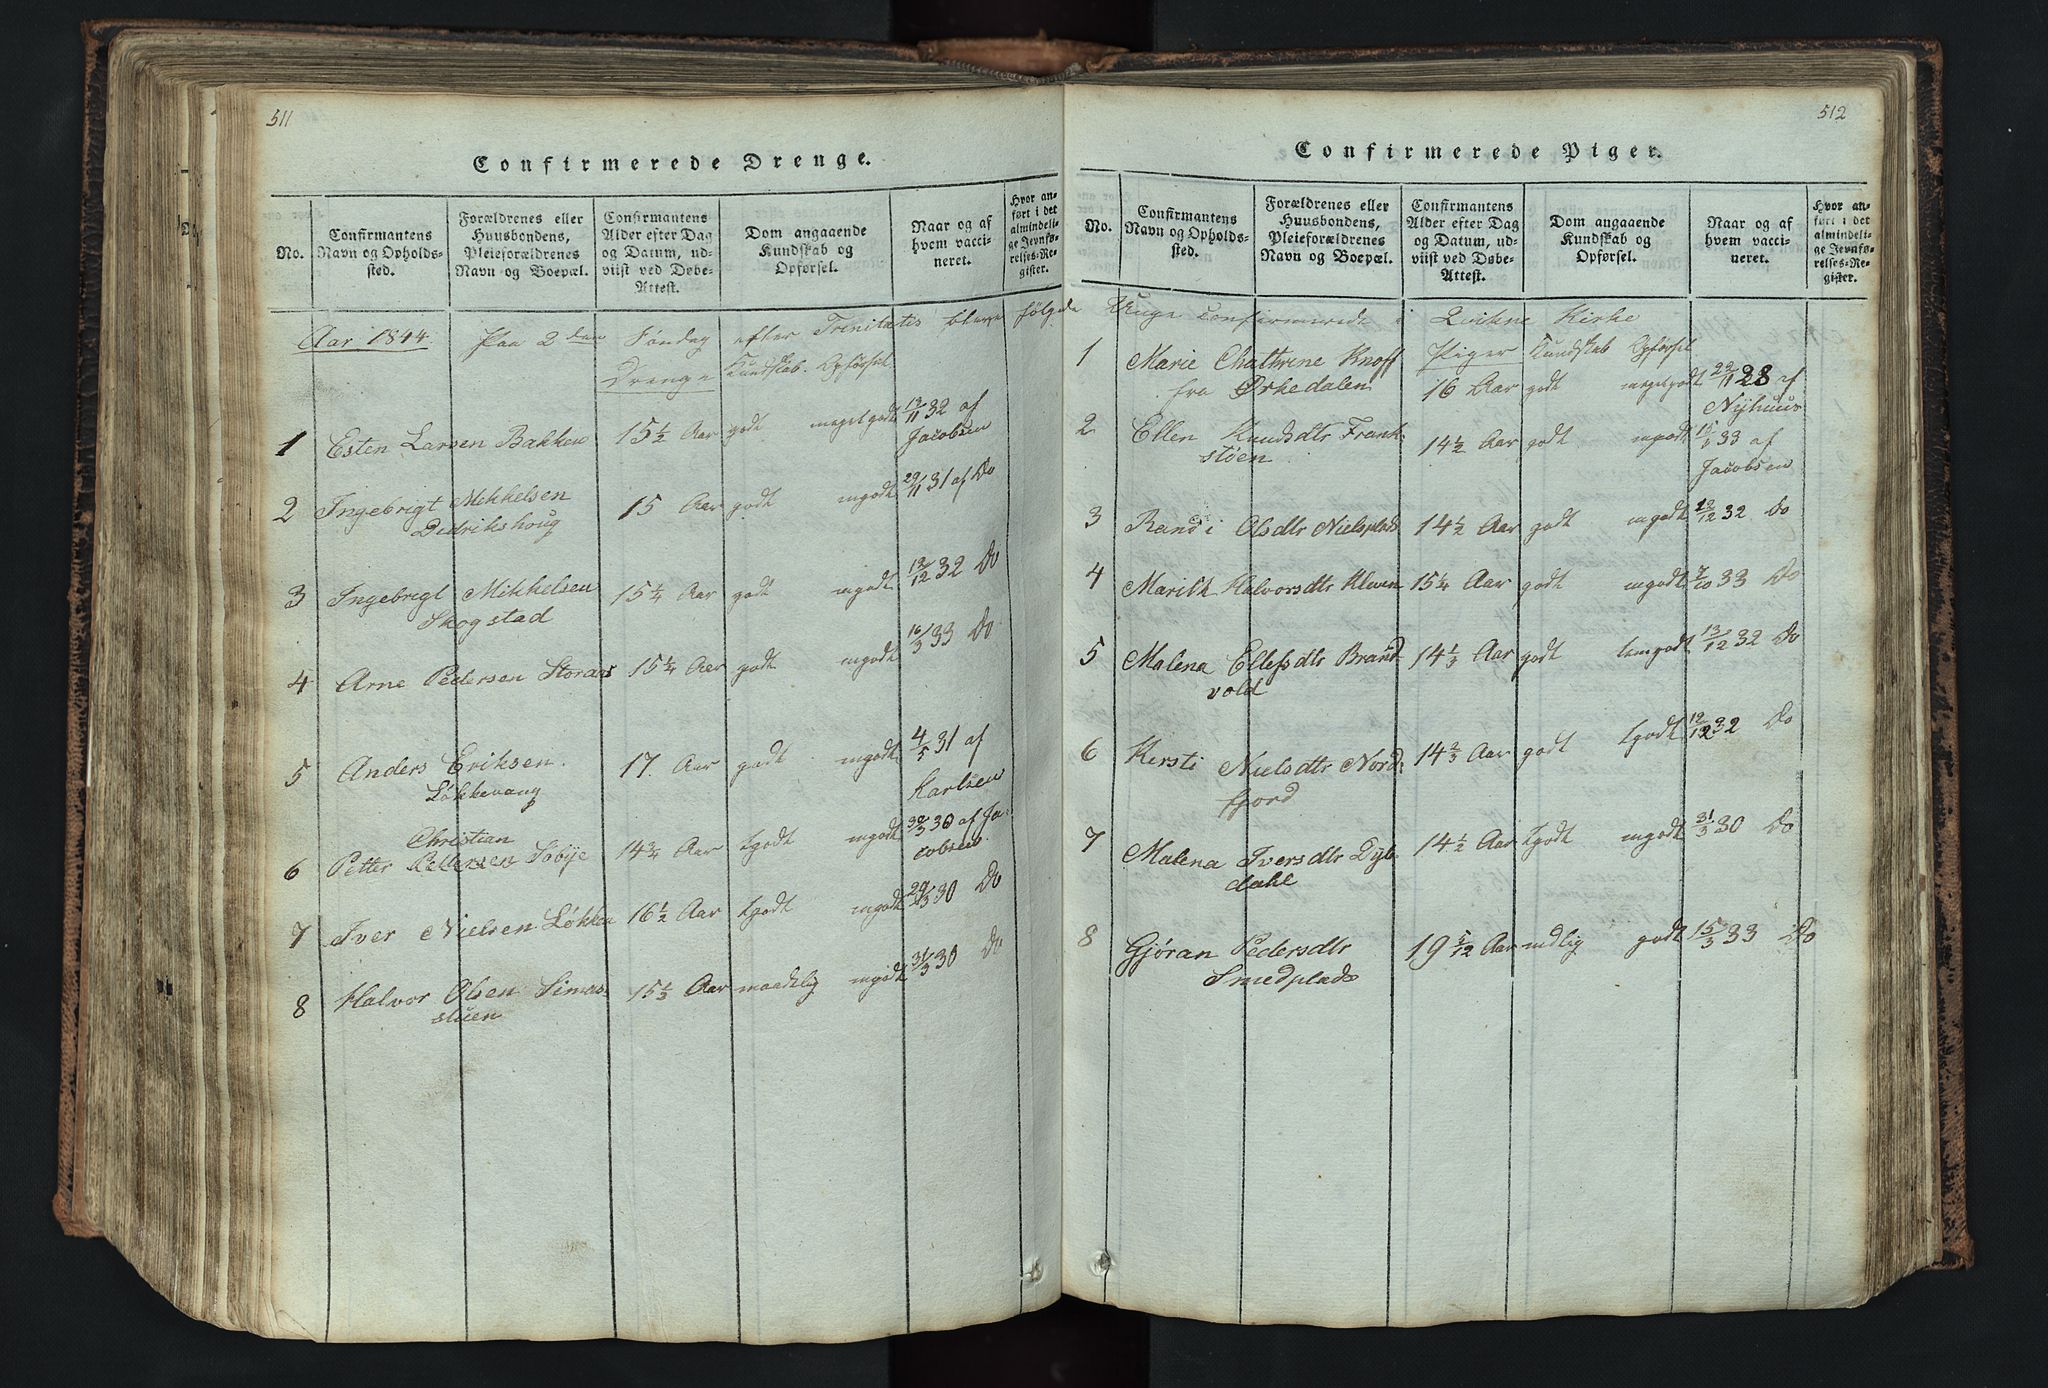 511
Confirmerede Drenge.
No.
Confirmantens Navn og Opholdssted.
Forældrenes eller Huusbondens, Pleieforældrenes Navn og Boepæl.
Confirmantens Alder efter Dag og Datum, udviist ved Døbe-Attest.
Dom angaaende Kundskab og Opførsel.
Naar og af hvem vaccineret.
Hvor anført i det almindelige Jevnførelses-Register.
Aar 1844. Paa 2den Søndag efter Trenitatis bleve følgende Unge confirmerede i Qvikne Kirke
Drenge Kundskab. Opførsel
1 Esten Larsen Bakken 15½ Aar godt megetgodt 12/11 32 af Jacobsen
2 Ingebrigt Mikkelsen Didrikshoug 15 Aar godt mgodt 29/11 31 af Do
3 Ingebrigt Mikkelsen Skogstad 15¼ Aar godt mgodt 12/12 32 Do
4 Arne Pedersen Storaas 15¼ Aar godt mgodt 16/3 33 Do
5 Anders Eriksen Løkkevang 17 Aar godt mgodt 4/5 31 af Karlsen
6 Petter Christian Pettersen Sobye 14¾ Aar tgodt mgodt 30/3 30 af Jacobsen
7 Iver Nielsen Løkken 16½ Aar tgodt mgodt 29/3 30 Do
8 Halvor Olsen Simensstuen 15⅓ Aar maadelig mgodt 31/3 30 Do
512
Confirmerede Piger.
No.
Confirmantens Navn og Opholdssted.
Forældrenes eller Huusbondens, Pleieforældrenes Navn og Boepæl.
Confirmantens Alder efter Dag og Datum, udviist ved Døbe-Attest.
Dom angaaende Kundskab og Opførsel.
Naar og af hvem vaccineret.
Hvor anført i det almindelige Jevnførelses-Register.
Piger Kundskab Opførsel
1 Marie Chathrine Knoff fra Ørkedalen 16 Aar godt megetgodt 22/11 28 af Nyhuus
2 Ellen Knudsdtr Frankstøen 14½ Aar godt mgodt 33 af Jacobsen
3 Randi Olsdtr Nielsplads 14½ Aar godt mgodt 12/12 32 Do
4 Marith Halvorsdtr Kleven 15¼ Aar godt mgodt 7/10 33 Do
5 Malena Ellefsdtr Brandvold 14⅓ Aar godt temgodt 13/12 32 Do
6 Kersti Nielsdtr Nordfjord 14⅔ Aar godt tgodt 12/12 32 Do
7 Malena Iversdtr Dybdahl 14½ Aar tgodt mgodt 31/3 30 Do
8 Gjøran Pedersdtr Smedplads 19 5/12 Aar mdlig godt 15/3 33 Do